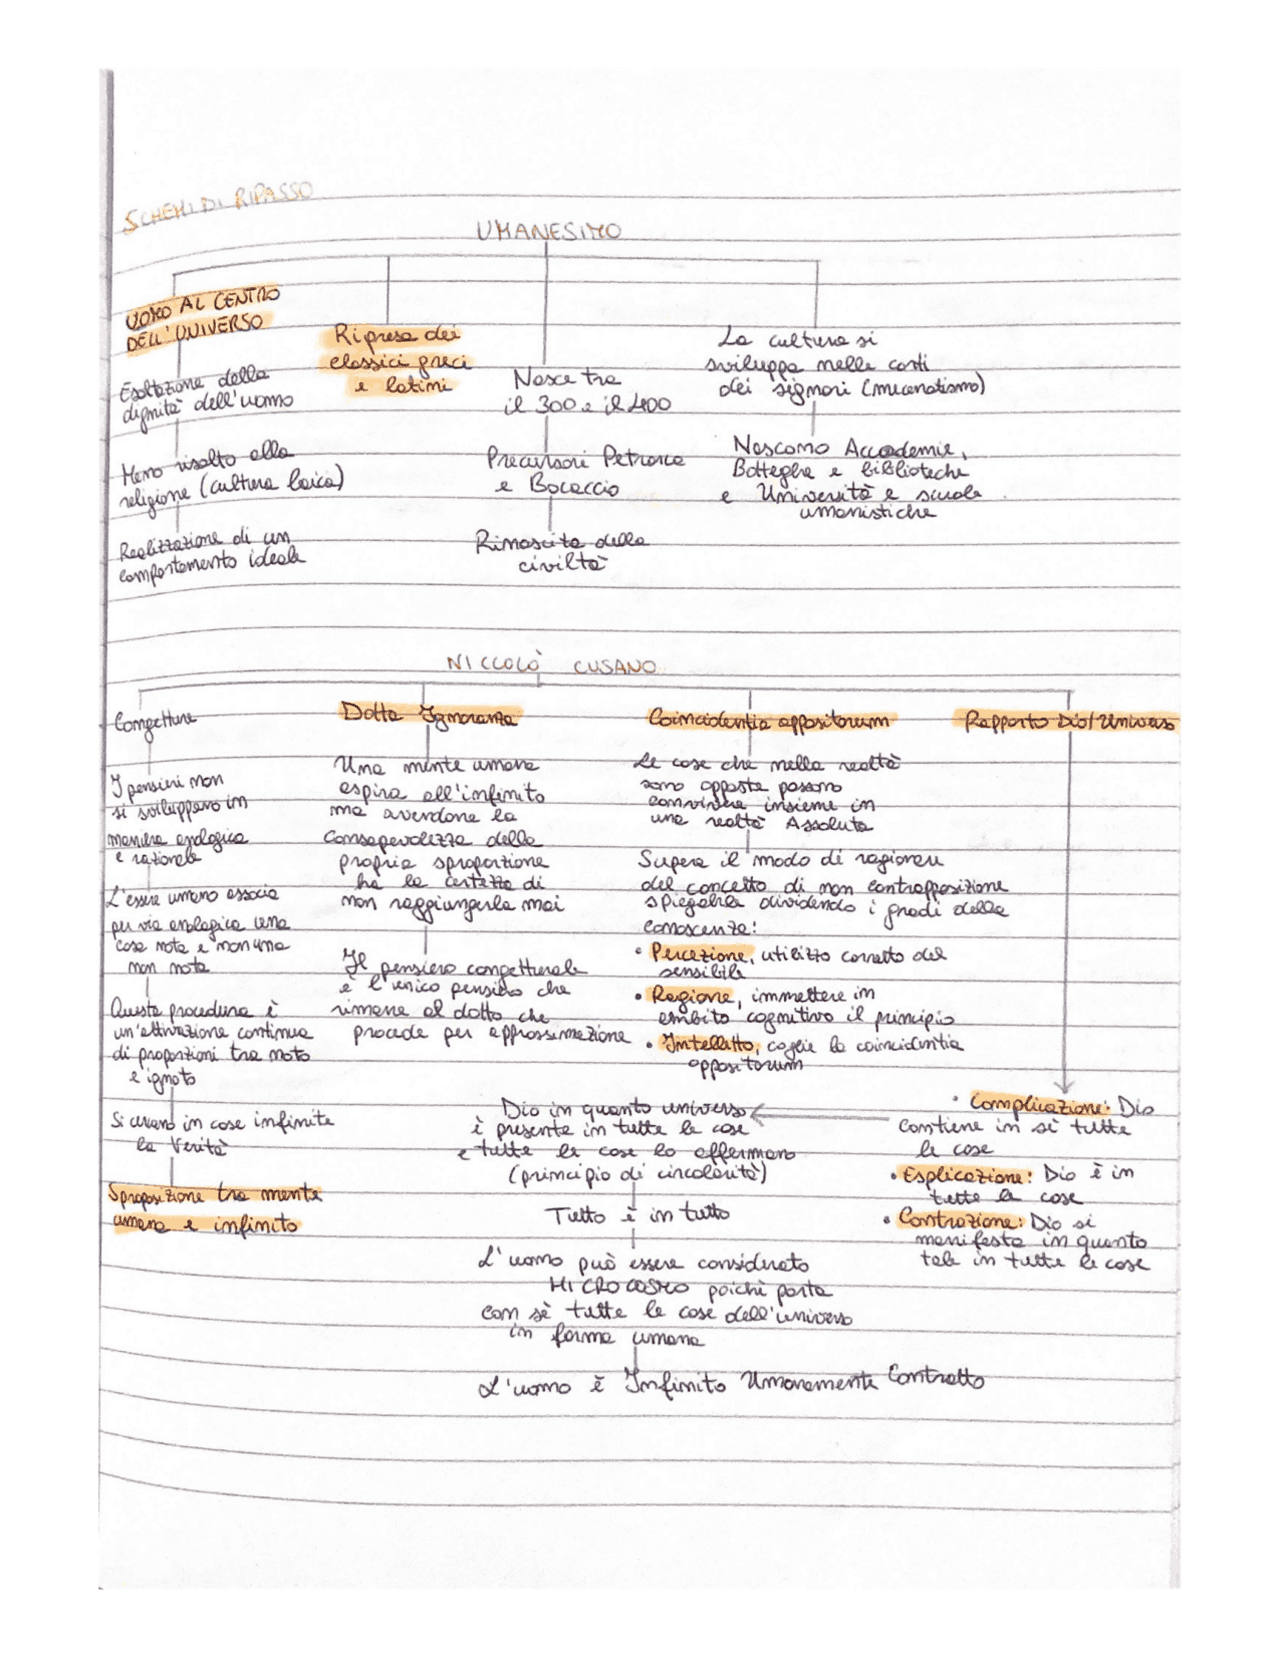 SCHEMI DI RIPASSO
UMANESIMO
UOMO AL CENTRO
DELL'UNIVERSO
Esaltazione della
dignità dell'uomo
Meno risalto alla
religione (cultura laica)
Realizzazione di un
comportamento ideale
Ripresa dei
classici greci
e latini
Nasce tra
il 300 e il 400
Precursori Petrarca
e Bocaccio
Rinascita della
civiltà
La cultura si
sviluppa nelle corti
dei signori (mecenatismo)
Nascono Accademie,
Botteghe e biblioteche
e Università e scuole
umanistiche
NICCOLÒ CUSANO
Congetture
I pensieri non
si sviluppano in
maniera analogica
e razionale
L'essere umano associa
per via analogica una
cosa nota e non una
non nota
Questa procedura è
un'attivazione continua
di proporzioni tra noto
e ignoto
Si cerano in cose infinite
la Verità
Sproposizione tra mente
umana e infinito
Dotta Ignoranza
Una mente umana
aspira all'infinito
ma avendone la
consapevolezza della
propria sproporzione
ha la certezza di
non raggiungerla mai
Il pensiero congetturale
è l'unico pensiero che
rimane al dotto che
procede per approssimazione
Coincidentia oppositorum
Le cose che nella realtà
sono opposte possono
convivere insieme in
una realtà Assoluta
Supera il modo di ragionare
del concetto di non contrapposizione
spiegabile dividendo i gradi della
conoscenza:
• Percezione, utilizzo corretto del
sensibile
• Ragione, immettere in
ambito cognitivo il principio
• Intelletto, coglie la coincidentia
oppositorum
Rapporto Dio/Universo
• Complicazione: Dio
contiene in sè tutte
le cose
• Esplicazione: Dio è in
tutte le cose
• Contrazione: Dio si
manifesta in quanto
tale in tutte le cose
Dio in quanto universo
è presente in tutte le cose
e tutte le cose lo affermano
(principio di circolarità)
Tutto è in tutto
L'uomo può essere considerato
MICROCOSMO poichè porta
con sè tutte le cose dell'universo
in forma umana
L'uomo è Infinito Umanamente Contratto